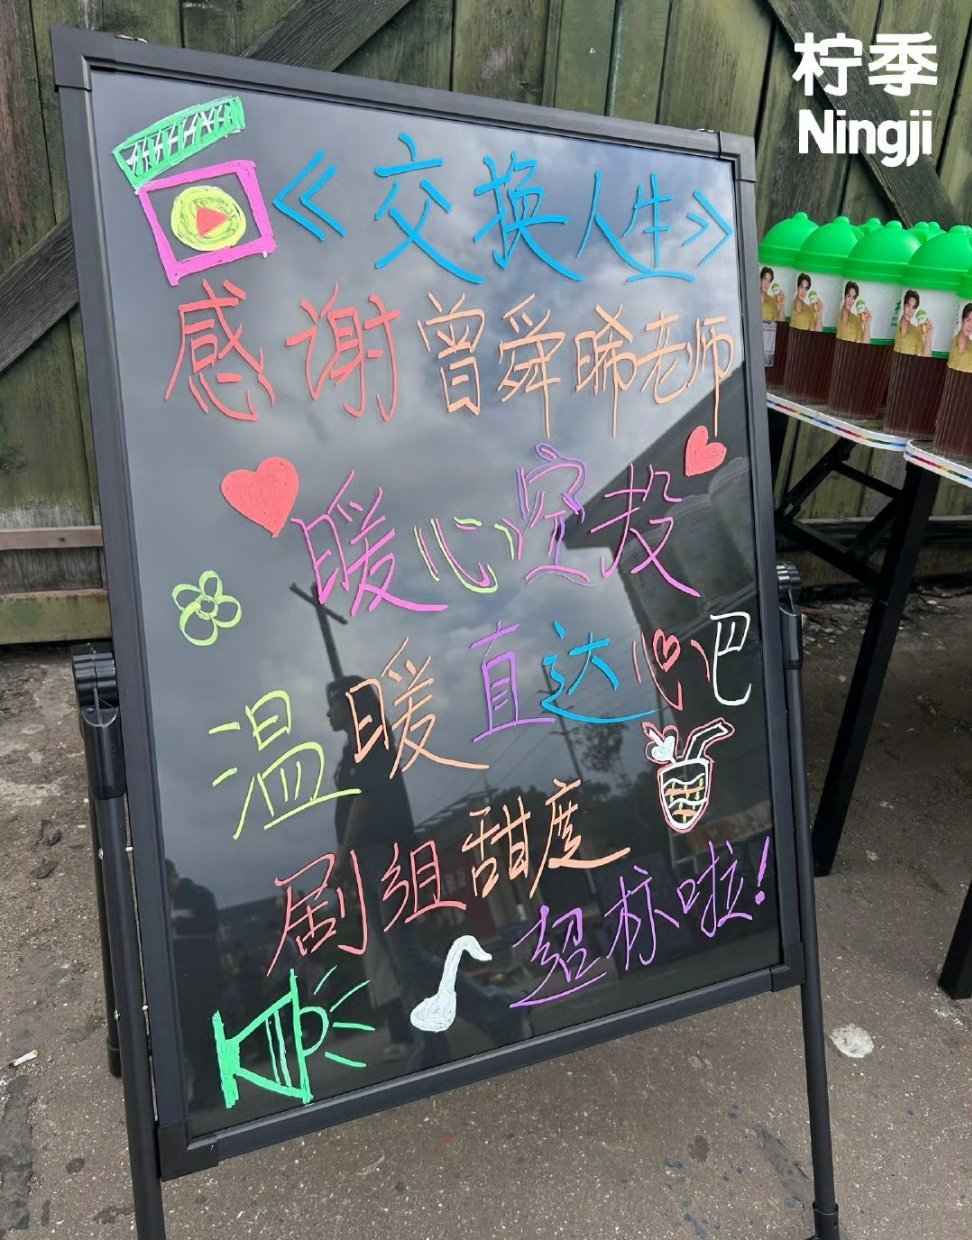 柠季
Ningji
《交换人生》
感谢曾舜晞老师
暖心空投
温暖直达心吧
剧组甜度
超标啦!